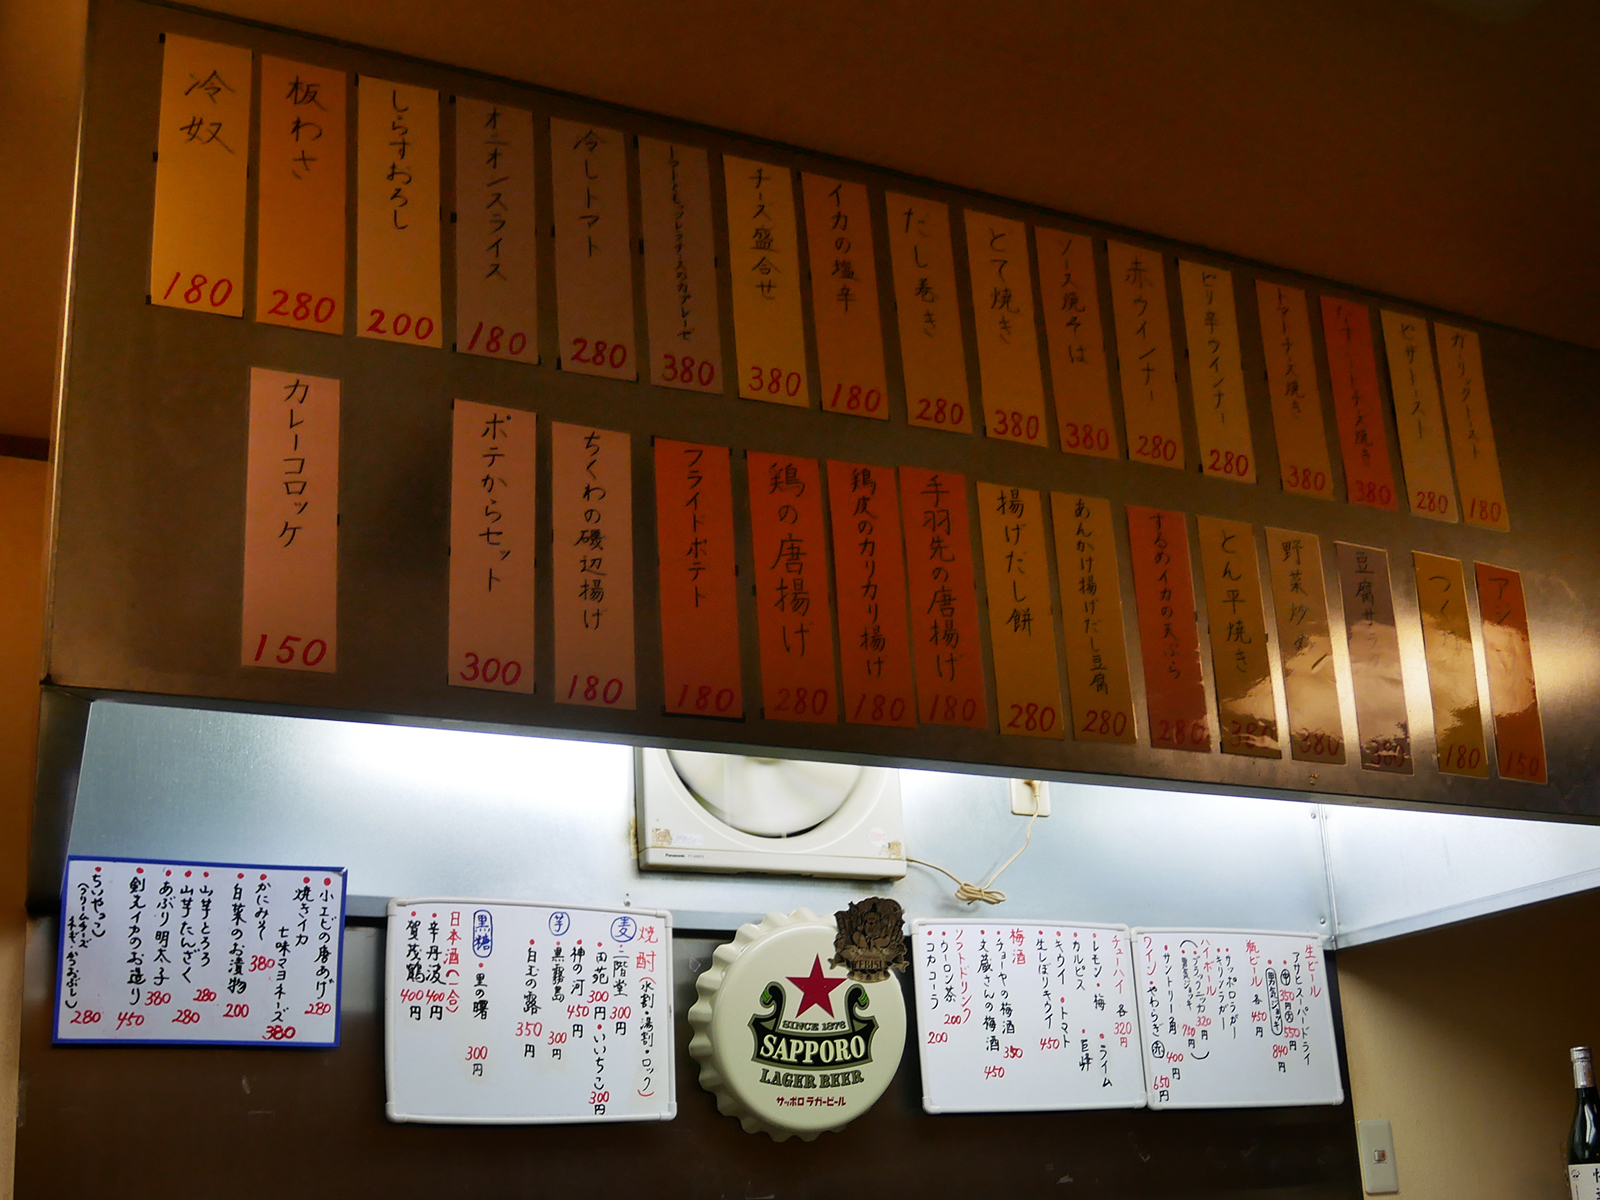 冷奴 180
板わさ 280
しらすおろし 200
オニオンスライス 180
冷しトマト 280
トマトともっツレラチーズのカプレーゼ 380
チーズ盛合せ 380
イカの塩辛 180
だし巻き 280
とて焼き 380
ソース焼そば 380
赤ウインナー 280
ピリ辛ウインナー 280
トマトチーズ焼き 380
なすトマトチーズ焼き 380
ピザトースト 280
ガーリックトースト 180
カレーコロッケ 150
ポテからセット 300
ちくわの磯辺揚げ 180
フライドポテト 180
鶏の唐揚げ 280
鶏皮のカリカリ揚げ 180
手羽先の唐揚げ 180
揚げだし餅 280
あんかけ揚げだし豆腐 280
するめイカの天ぷら 280
とん平焼き 380
野菜炒め 380
豆腐サラダ 380
つく 180
アジ 150
小エビの唐あげ 280
焼きイカ
七味マヨネーズ 380
かにみそ 380
白菜のお漬物 200
山芋とろろ 280
山芋たんざく 280
あぶり明太子 380
剣先イカのお造り 450
ちいやっこ
(クリームチーズ ネギ・かつおぶし) 280
焼酎(水割・湯割・ロック)
麦 二階堂 300円
・いいちこ 300円
・田苑 300円
神の河 450円
芋 ・黒霧島 300円
・白玉の露 350円
黒糖 ・里の曙 300円
日本酒(一合)
・辛丹波 400円
・賀茂鶴 400円
SINCE 1876
SAPPORO
LAGER BEER
サッポロ ラガービール
YEBISU
Panasonic
チューハイ 各320円
・レモン・梅 ・ライム
・カルピス ・巨峰
・キウイ ・トマト
・生しぼりキウイ 450
梅酒
・チョーヤの梅酒 350
・文蔵さんの梅酒 450
ソフトドリンク
・ウーロン茶 200
・コカコーラ 200
生ビール
アサヒスーパードライ
中350円 大550円
男気ジョッキ 840円
瓶ビール 各450円
・サッポロラガー
・キリンラガー
ハイボール
・ブラックニッカ 320円
(男気ジョッキ 780円)
・サントリー角 400円
ワイン・やわらぎ 赤 650円